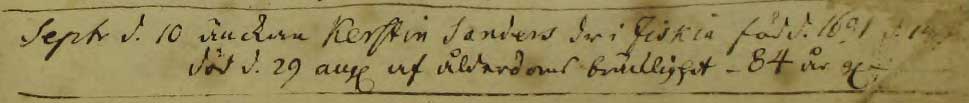 Septr d. 10 änckan Kerstin Sanders dr i Fiskia född d. 1691
död d. 29 aug af ålderdoms bräcklighet - 84 år